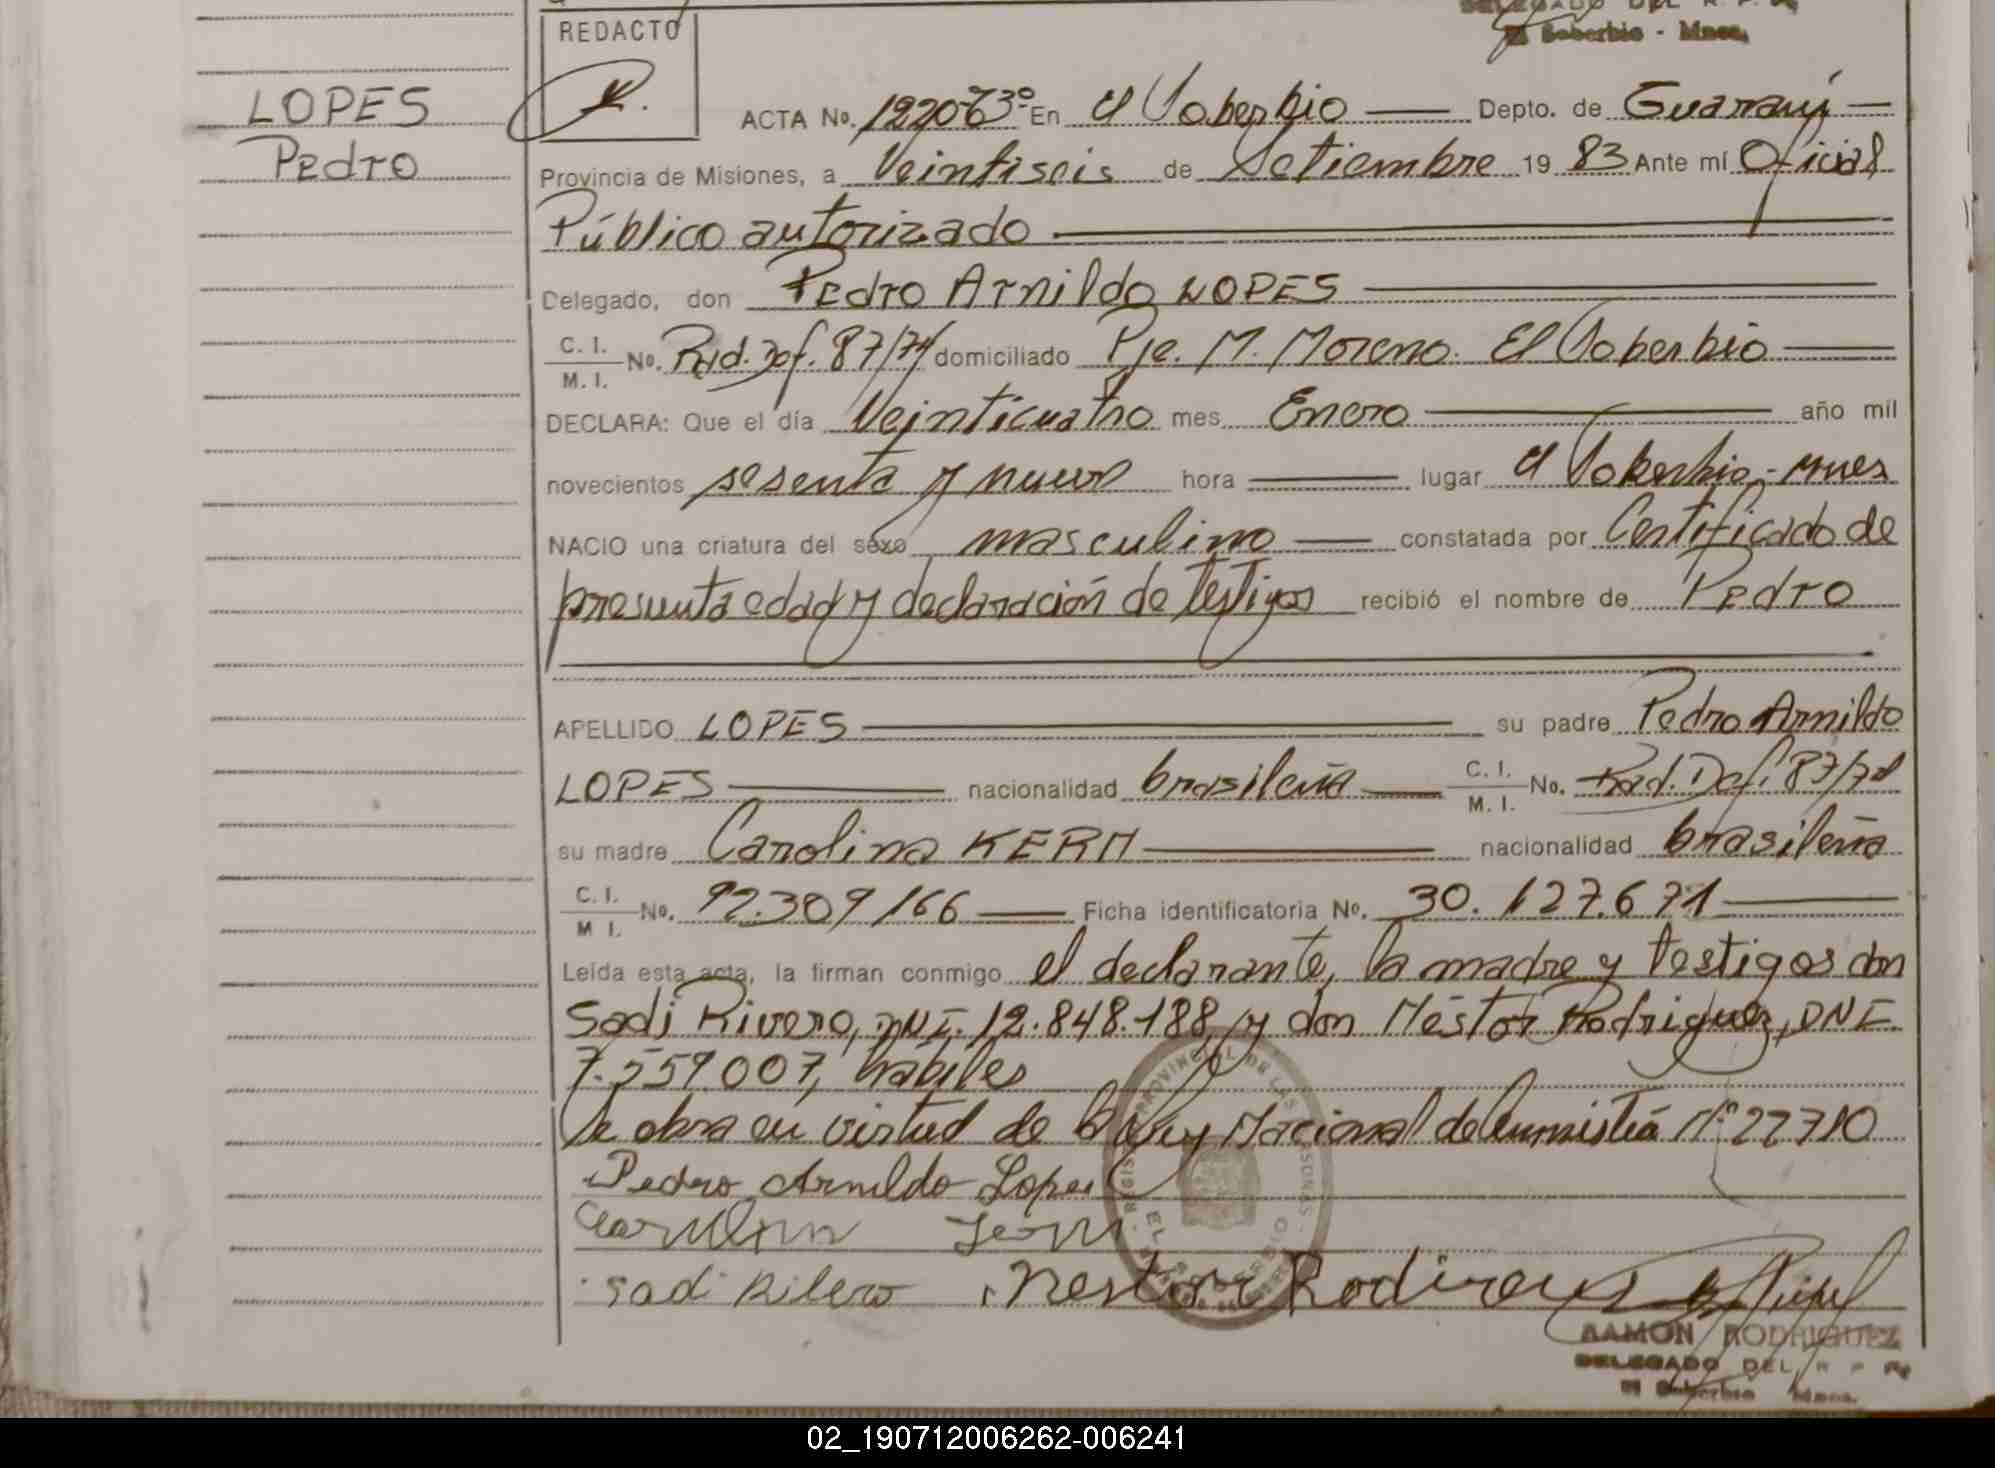 REDACTO
DELEGADO DEL R. P. P.
El Soberbio - Mnes.
LOPES
Pedro
ACTA No. En El Soberbio Depto. de Guaraní
Provincia de Misiones, a Veintiseis de Setiembre 19 83 Ante mí Oficial
Público autorizado
Delegado, don Pedro Arnildo LOPES
C. I.
M. I. No. Rad. Def. 87/74 domiciliado Pje. M. Moreno. El Soberbio
DECLARA: Que el día Veinticuatro mes Enero año mil
novecientos sesenta y nueve hora lugar El Soberbio - Mnes
NACIO una criatura del sexo masculino constatada por Certificado de
presunta edad y declaración de testigos recibió el nombre de Pedro
APELLIDO LOPES su padre Pedro Arnildo
LOPES nacionalidad brasileña C. I.
M. I. No. Rad. Def. 87/74
su madre Carolina KERN nacionalidad brasileña
C. I.
M I. No. 92.309166 Ficha identificatoria No. 30.127.671
Leída esta acta, la firman conmigo el declarante, la madre y testigos don
Sadi Rivero, DNI. 12.848.188, y don Néstor Rodriguez, DNI.
7.559.007, hábiles
Se obra en virtud de la Ley Nacional de Amnistía N° 22710
Pedro Arnildo Lopes
Sadi Rilero Nestor
RAMON RODRIGUEZ
DELEGADO DEL R P P
El Soberbio Mnes.
02_190712006262-006241